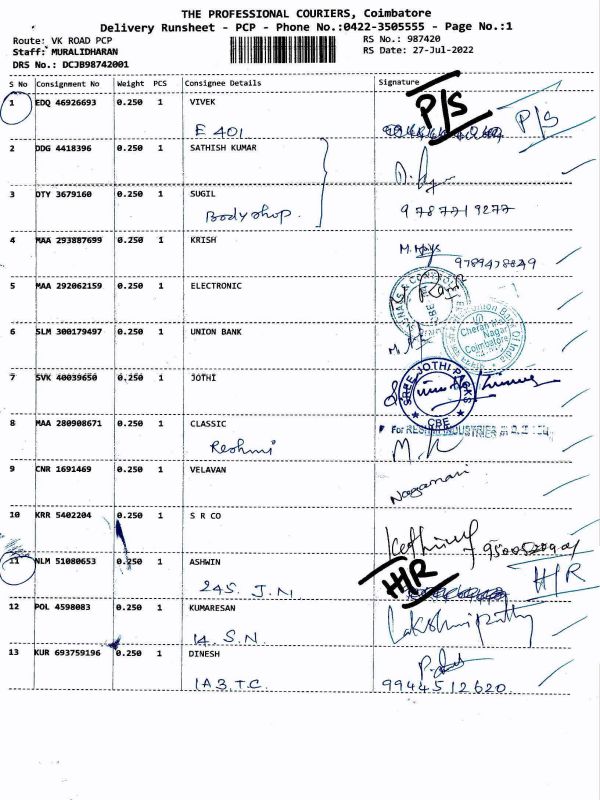 THE PROFESSIONAL COURIERS, Coimbatore
Delivery Runsheet - PCP - Phone No.:0422-3505555 - Page No.:1
Route: VK ROAD PCP
RS No.: 987420
Staff: MURALIDHARAN
RS Date: 27-Jul-2022
DRS No.: DCJB98742001
S No Consignment No Weight PCS Consignee Details Signature
1 EDQ 46926693 0.250 1 VIVEK P/S P/S
E 401
2 DDG 4418396 0.250 1 SATHISH KUMAR
3 DTY 3679160 0.250 1 SUGIL
Body shop. 9787719277
4 MAA 293887699 0.250 1 KRISH
9789478849
5 MAA 292062159 0.250 1 ELECTRONIC
6 SLM 300179497 0.250 1 UNION BANK
Union Bank Of India
Cheran Ma
Nagar
Coimbatore
7 SVK 40039650 0.250 1 JOTHI
SREE JOTHI PACKS
CBE
8 MAA 280908671 0.250 1 CLASSIC
For RESHMI INDUSTRIES
Reshmi
9 CNR 1691469 0.250 1 VELAVAN
Nagamani
10 KRR 5402204 0.250 1 S R CO
11 NLM 51080653 0.250 1 ASHWIN H/R H/R
245. J.N.
12 POL 4598083 0.250 1 KUMARESAN
14. S.N.
13 KUR 693759196 0.250 1 DINESH
1A3.T.C. 9944512620.